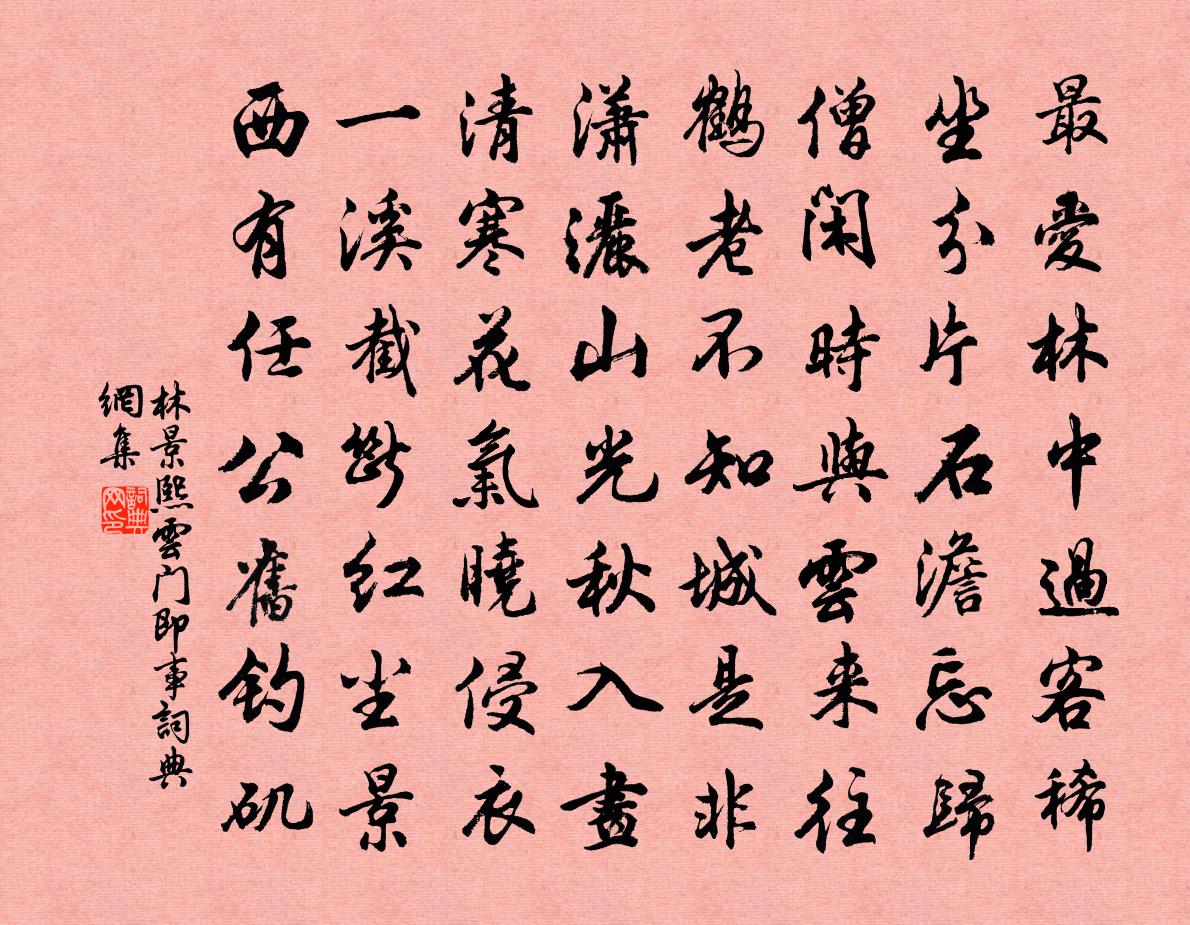 最愛林中過客稀
坐分片石澹忘歸
僧閑時與雲来往
鶴老不知城是非
瀟灑山光秋入畫
清寒花氣曉侵衣
一溪截斷紅尘景
西有任公舊釣矶
林景熙雲门即事詞典
網集
詞典
网印